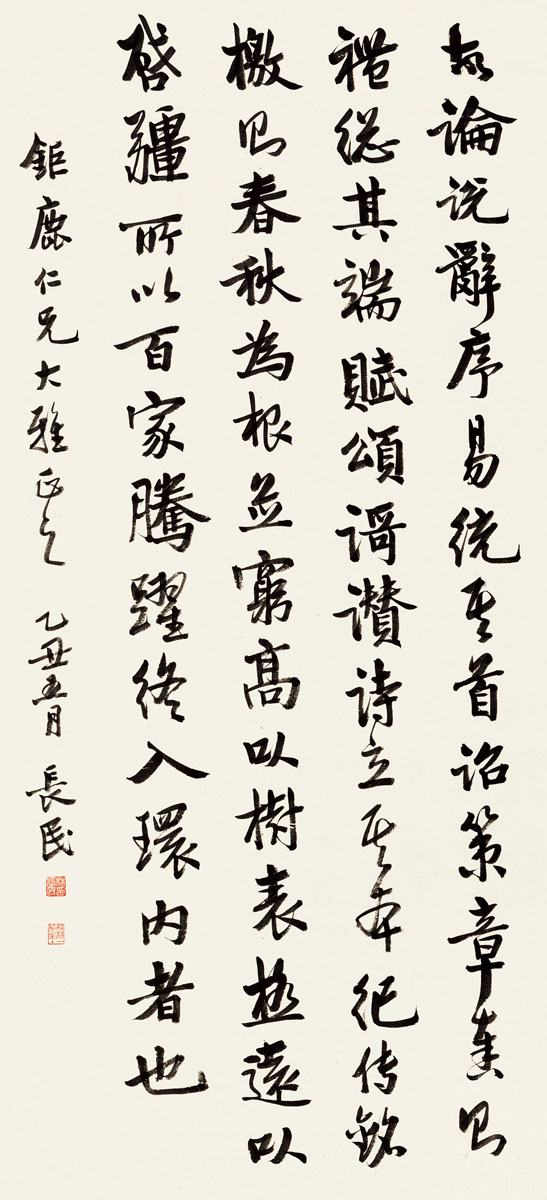 故論說辭序易統其首詔策章奏則
禮總其端賦頌謌讚詩立其本紀傳銘
檄則春秋為根並窮高以樹表極遠以
啓疆所以百家騰躍終入環內者也
鉅鹿仁兄大雅正之 乙丑五月 長民